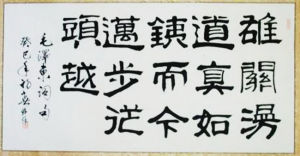 雄關漫
道真如
銕而今
邁步從
頭越
毛澤東詞句
癸巳年